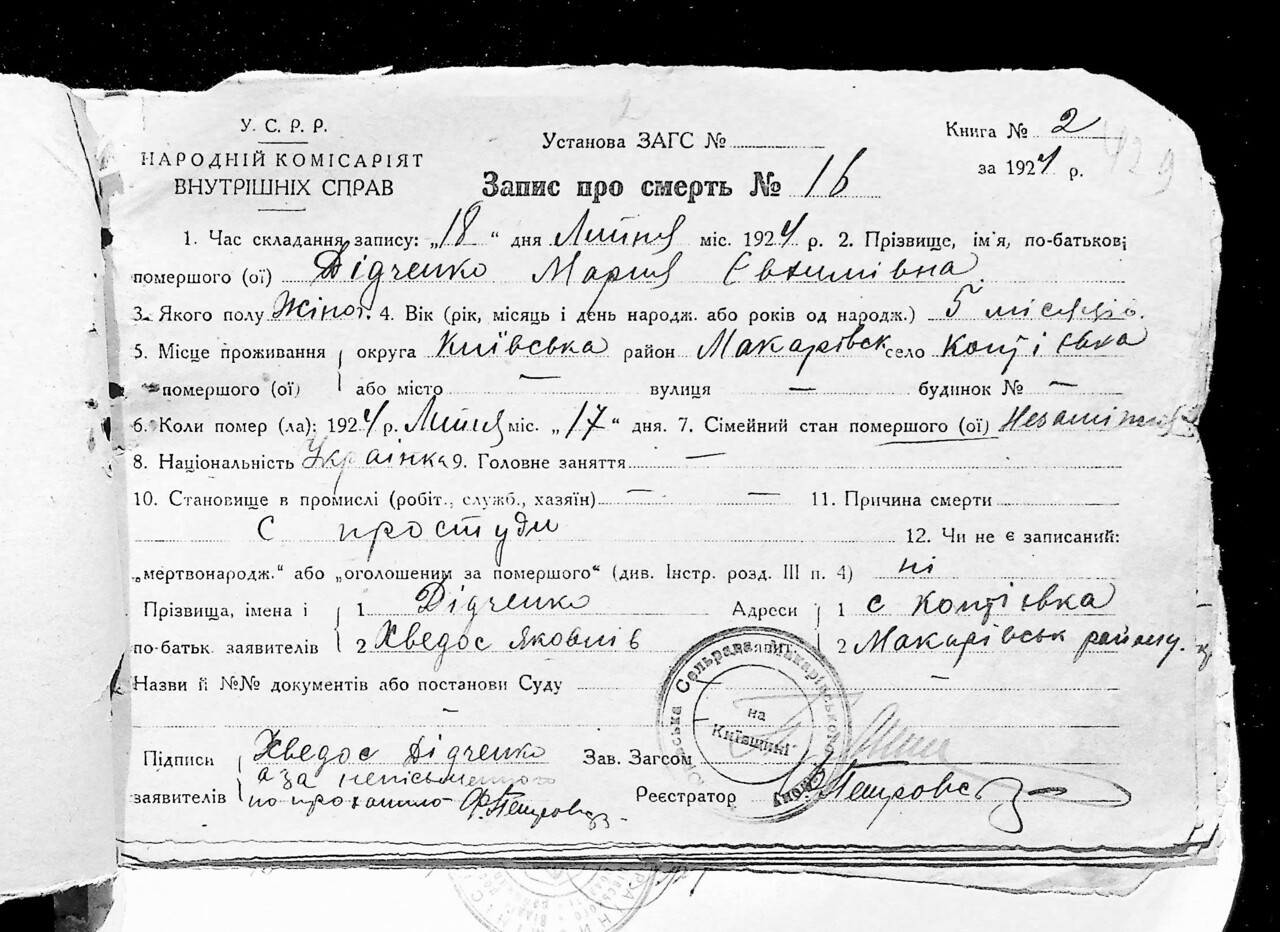 У. С. Р. Р.
НАРОДНІЙ КОМІСАРІЯТ
ВНУТРІШНІХ СПРАВ
Установа ЗАГС №
Книга № 2
за 1924 р.
429
Запис про смерть № 16
1. Час складання запису: „18“ дня Липня міс. 1924 р. 2. Прізвище, ім'я, по-батькові
помершого (ої) Дідченко Мария Євхимівна
3. Якого полу Жіноч. 4. Вік (рік, місяць і день народж. або років од народж.) 5 місяців.
5. Місце проживання округа Київська район Макарівск село Копіівка
помершого (ої) або місто — вулиця — будинок № —
6. Коли помер (ла): 1924 р. Липня міс. „17“ дня. 7. Сімейний стан помершого (ої)
8. Національність Українка 9. Головне заняття —
10. Становище в промислі (робіт., служб., хазяїн) — — 11. Причина смерти
С простуди 12. Чи не є записаний:
„мертвонародж.“ або „оголошеним за помершого“ (див. Інстр. розд. III п. 4) ні
Прізвища, імена і 1 Дідченко Адреси 1 с Копіівка
по-батьк. заявителів 2 Хведос Яковлів 2 Макарівськ району.
Назви й №№ документів або постанови Суду —
—
Підписи Хведос Дідченко Зав. Загсом
а за неписьменного
заявителів по проханню Ф. Петровс Реєстратор Ф Петровс
Сельрада Макарівського
на
Київщині